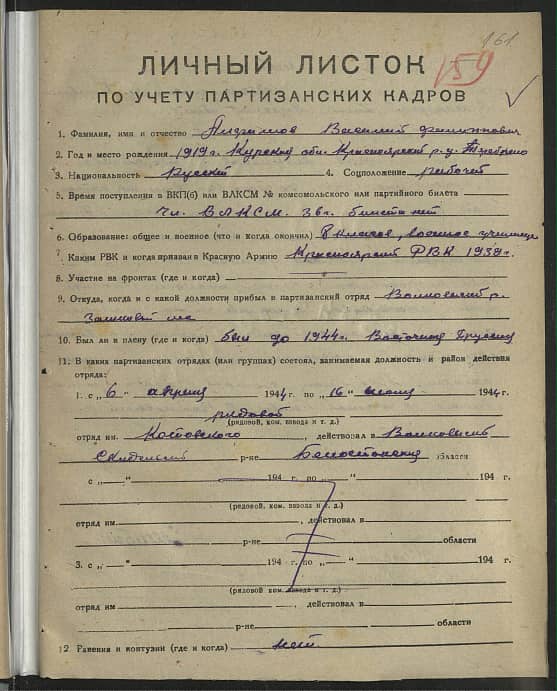 161
159
ЛИЧНЫЙ ЛИСТОК
ПО УЧЕТУ ПАРТИЗАНСКИХ КАДРОВ
1. Фамилия, имя и отчество Василий Филиппович
2. Год и место рождения 1919г. Курская обл. Красноярский р.д.
3. Национальность Русский 4. Соцположение рабочий
5. Время поступления в ВКП(б) или ВЛКСМ № комсомольского или партийного билета
Чл. ВЛКСМ. 36г. билета нет
6. Образование: общее и военное (что и когда окончил) 8 классов, военное училище
7. Каким РВК и когда призван в Красную Армию Красноярский РВК 1939г.
8. Участие на фронтах (где и когда)
9. Откуда, когда и с какой должности прибыл в партизанский отряд Волковысский р.
10. Был ли в плену (где и когда) был до 1944г. Восточная Пруссия
11. В каких партизанских отрядах (или группах) состоял, занимаемая должность и район действия
отряда:
1. с „ 6 “ апреля 1944 г. по „ 16 “ июля 1944 г.
рядовой
(рядовой, ком. взвода и т. д.)
отряд им. Котовского, действовал в Волковыский
Скидельский р-не Белостокская области
с „ “ 194 г. по „ “ 194 г.
(рядовой, ком. взвода и т. д.)
отряд им. , действовал в
р-не области
3. с „ “ 194 г. по „ “ 194 г.
(рядовой ком. взвода и т. д.)
отряд им. , действовал в
р-не области
12 Ранения и контузии (где и когда) нет.